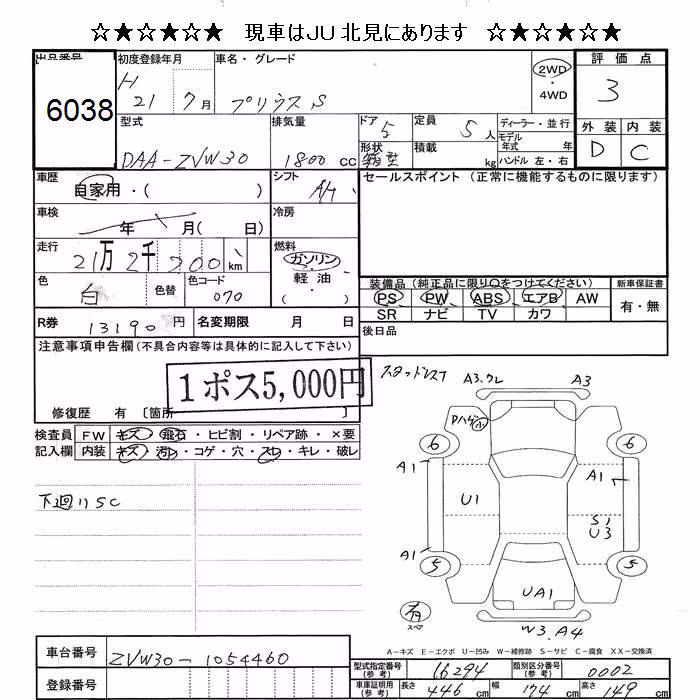 ☆★☆★☆ 現車はJU北見にあります ☆★☆★☆
出品番号 初度登録年月 車名・グレード 評価点
6038 H 21 7月 プリウス S 2WD ・ 4WD 3
型式 排気量 ドア 定員 ディーラー・並行 外装 内装
DAA-ZVW30 1800 cc 5 5人 モデル年式 年 D C
形状 箱型 積載 kg ハンドル 左・右
車歴 自家用・( ) シフト A/T セールスポイント (正常に機能するものに限ります)
車検 年 月(日) 冷房
走行 21万2千200 km 燃料 ガソリン・軽油・( )
色 白 色替 色コード 070
装備品 (純正品に限り○をつけてください) 新車保証書
PS PW ABS エアB AW 有・無
SR ナビ TV カワ
R券 13190円 名変期限 月 日 後日品
注意事項申告欄(不具合内容等は具体的に記入して下さい)
1ポス5,000円
修復歴 有 [箇所 ]
検査員記入欄 FW キズ・飛石・ヒビ割・リペア跡・×要
内装 キズ・汚レ・コゲ・穴・スレ・キレ・破レ
下廻りSC
スタッドレスT
A3.ワレ A3
Pハゲ小
6 6
A1 A1
U1 S1
U3
A1
5 5
UA1
有
スペア
W3.A4
A-キズ E-エクボ U-凹み W-補修跡 S-サビ C-腐食 XX-交換済
車台番号 ZVW30-1054460
登録番号
型式指定番号(参考) 16294 類別区分番号(参考) 0002
車庫証明用(参考) 長さ 446cm 幅 174cm 高さ 149cm